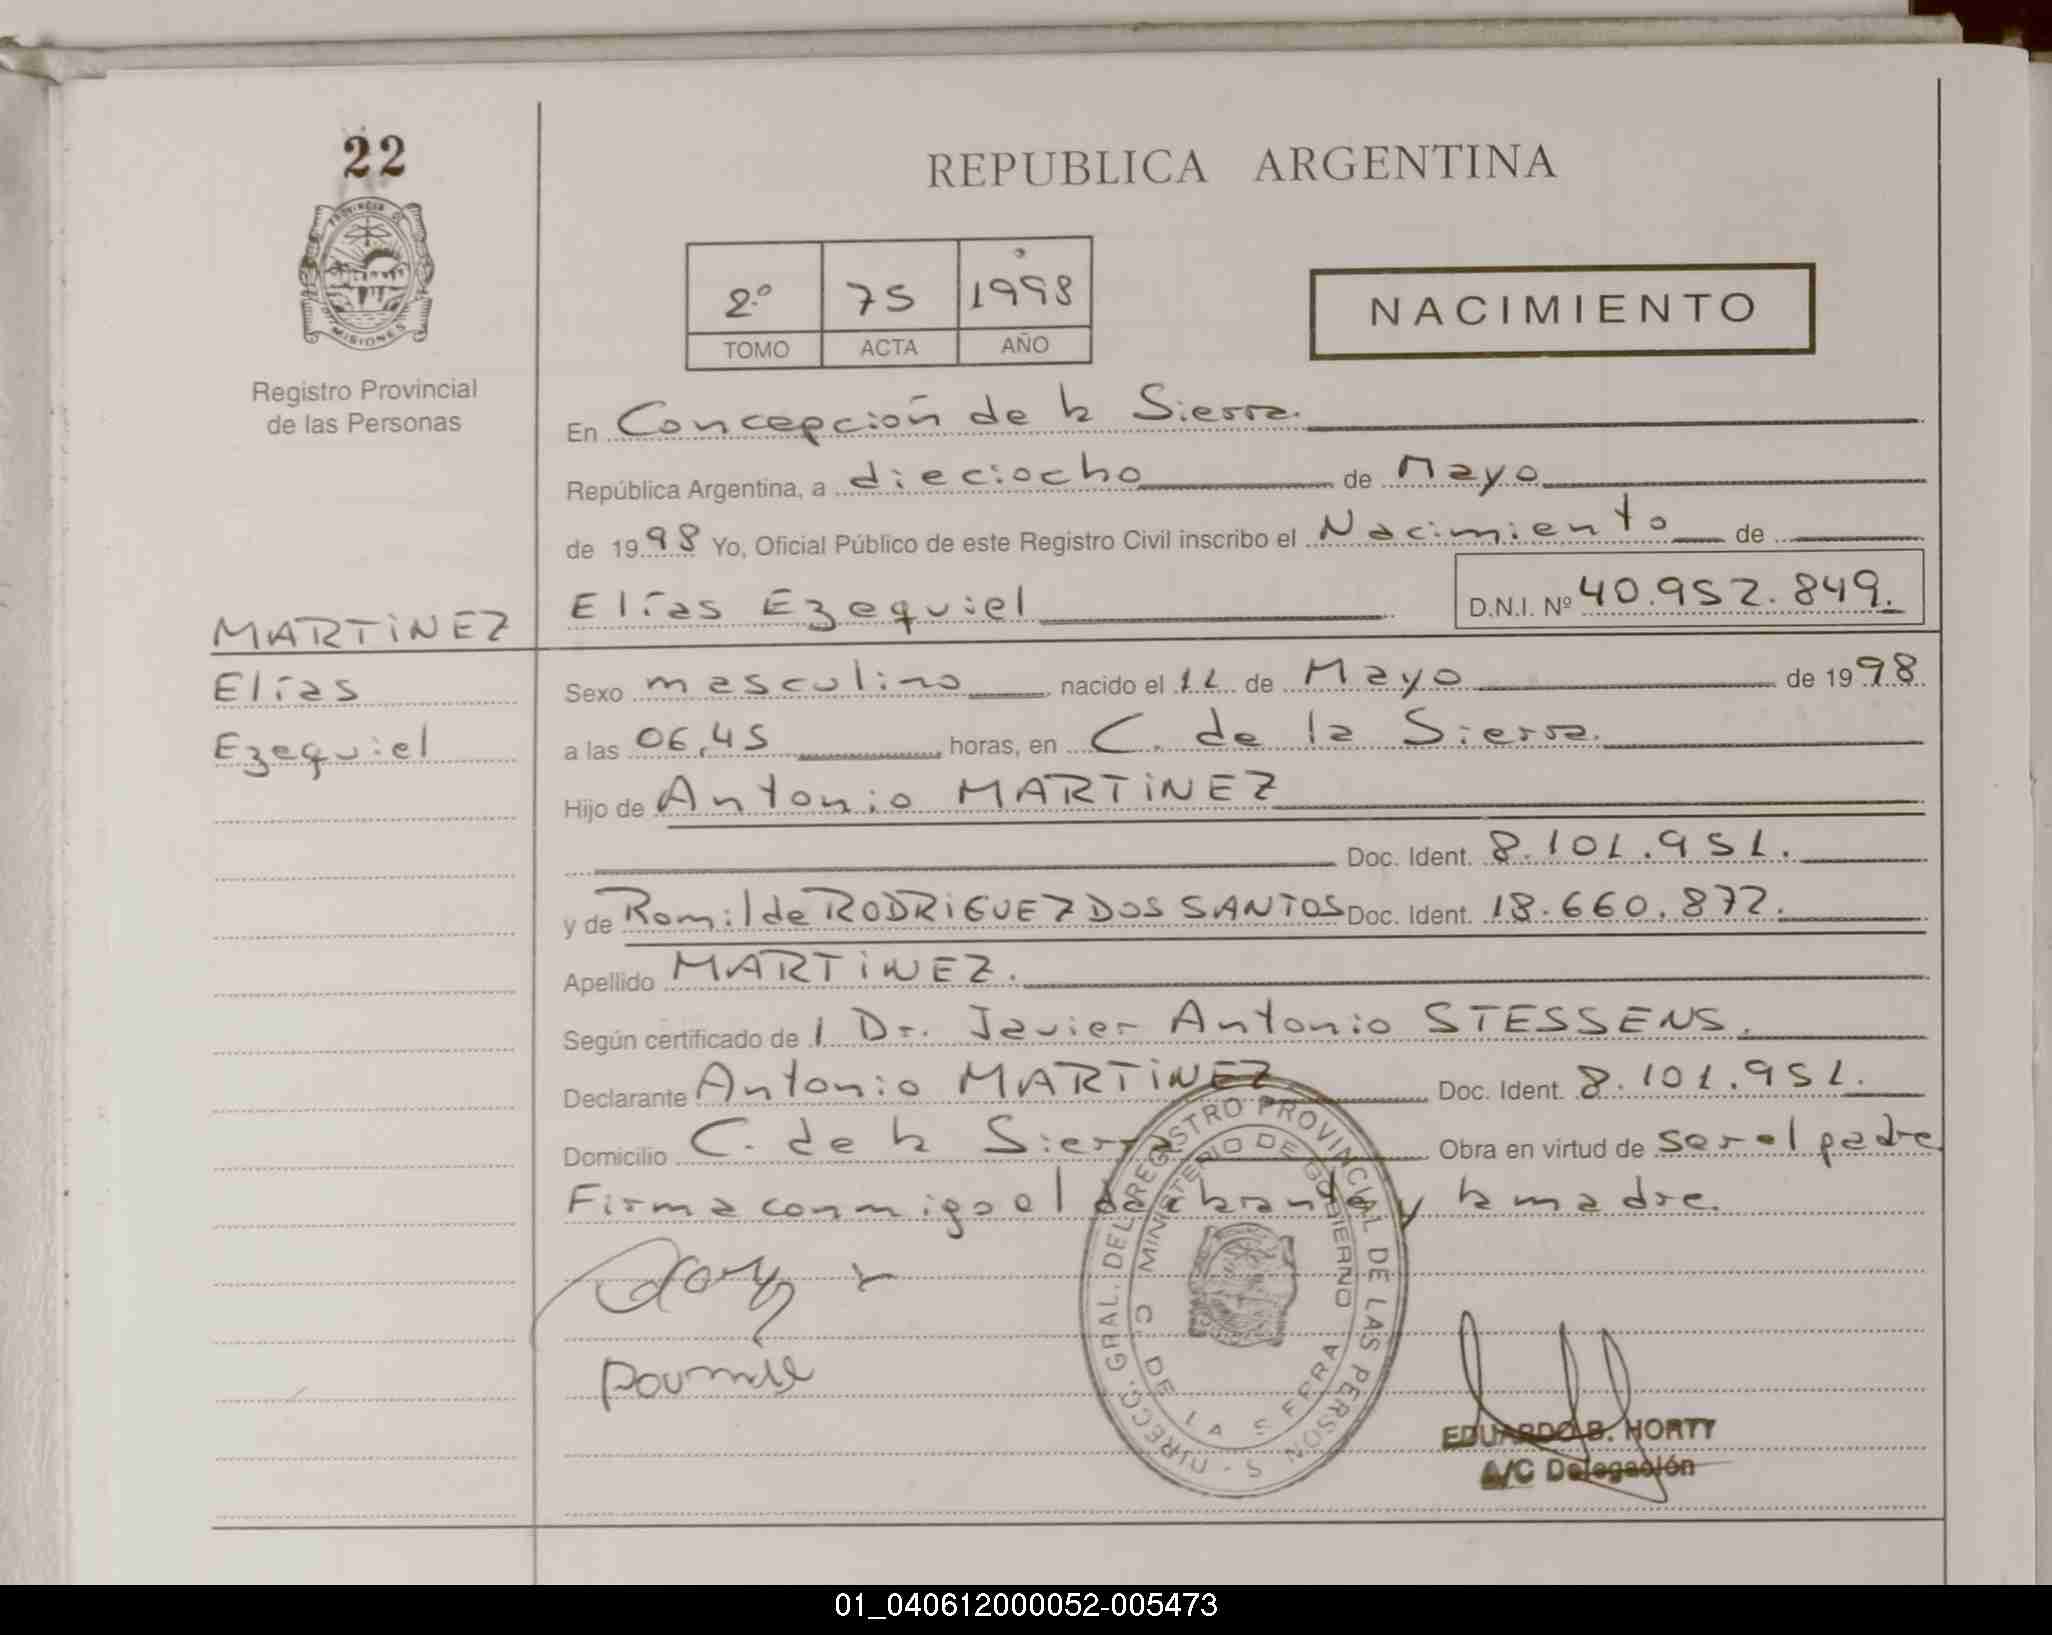 22
PROVINCIA DE
MISIONES
Registro Provincial
de las Personas
REPUBLICA ARGENTINA
2º 75 1998
TOMO ACTA AÑO
NACIMIENTO
En Concepción de la Sierra.
República Argentina, a dieciocho de Mayo
de 1998 Yo, Oficial Público de este Registro Civil inscribo el Nacimiento de
Elías Ezequiel D.N.I. Nº 40.952.849.
MARTiNEZ
Elías
Ezequiel
Sexo masculino nacido el 11 de Mayo de 1998
a las 06,45 horas, en C. de la Sierra.
Hijo de Antonio MARTiNEZ
Doc. Ident. 8.101.951.
y de Romilda RODRiGUEZ DOS SANTOS Doc. Ident. 18.660.872.
Apellido MARTiNEZ.
Según certificado de 1 Dr. Javier Antonio STESSENS.
Declarante Antonio MARTiNEZ Doc. Ident. 8.101.951.
Domicilio C. de la Sierra Obra en virtud de ser el padre
Firma conmigo el declarante y la madre.
DIRECC. GRAL. DEL REGISTRO PROVINCIAL DE LAS PERSONAS
MINISTERIO DE GOBIERNO
C. DE LA SIERRA
EDUARDO B. HORTT
A/C Delegación
01_040612000052-005473